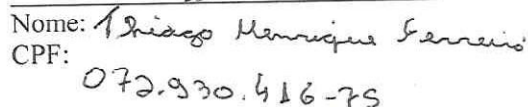 Nome: Thiago Henrique Ferreira
CPF:
072.930.416-75